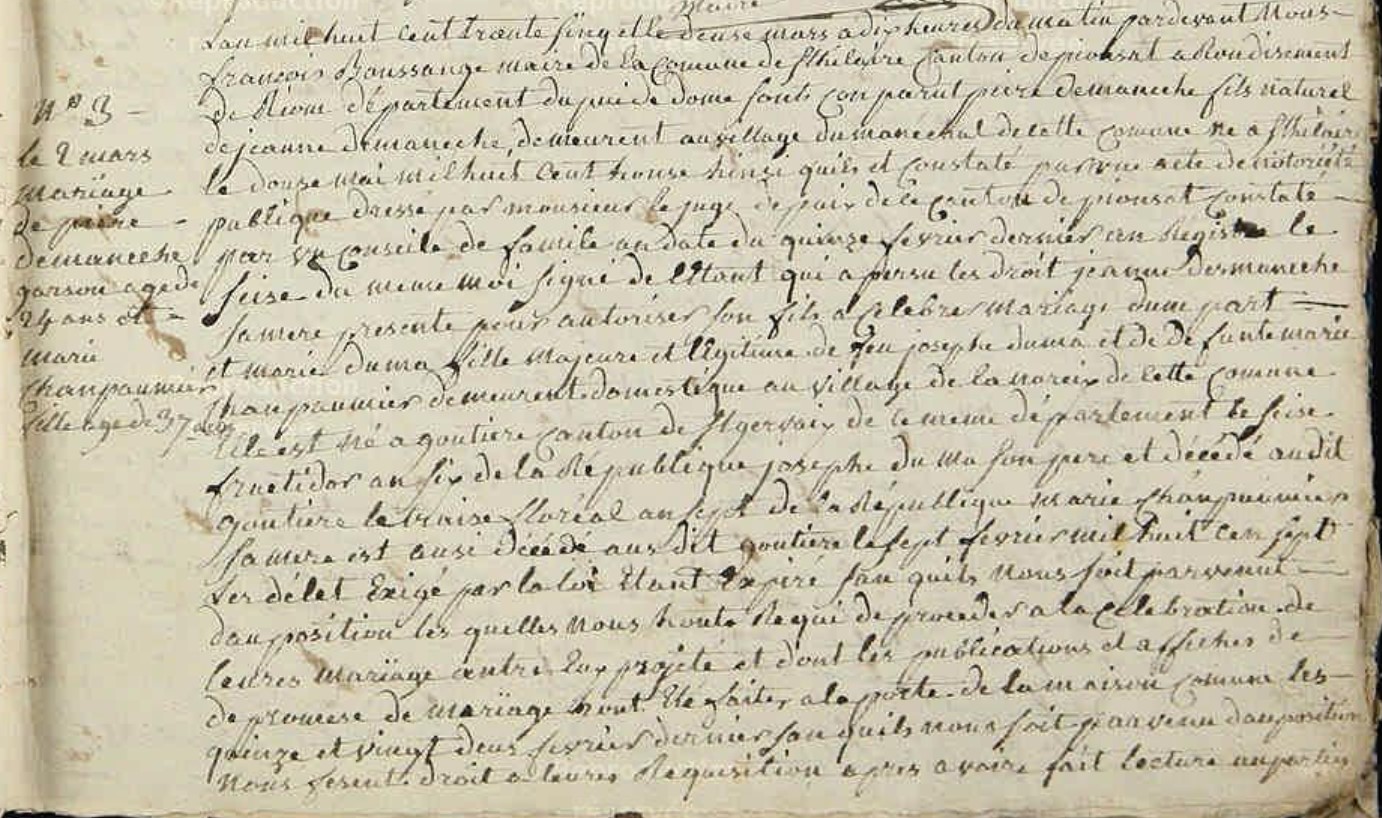 maire
Lan mil huit cent trante sinq et le deuse mars a dix heures du matin pardevant Nous
françois Boussange maire de la Comune de st hilaire Canton de pionsat a Rondisement
de Riom département du pui de dome sont conparut piere demaneche fils naturel
de jeanne demaneche, demeurent au village du maréchal de cette comune né a st hilaire
le douse mai mil huit cent honse hinsi quils et constaté par une acte de notoriété
publique dressé par monsieur le juge de paix de le canton de pionsat constate
par un conseile de famile an date du quinze fevrier dernier an Registre le
seise du meme moi signé de létant qui a persu les droit jeanne desmaneche
sa mere presente pour autoriser son fils a célébrer mariage dune part
et marie duma fille majeure et légitime de feu josephe duma et de defunte marie
chanpaumier demeurent domestique au village de la noreix de cette comune
Elle est né a goutiere canton de st gervaix de ce meme département le seise
fructidor an six de la République josephe du ma son pere et décédé audit
goutiere le traise floréal an sept de la République marie chanpaumier
sa mere est ausi décédé aus dit goutiere le sept fevrier mil huit cen sept
les délet Exigé par la loi étant Expiré san quils nous soit parvenu
dauposition les quelles nous honte Requi de proceder a la celebration de
leures mariage antre eux projeté et dont les publications et affiches de
de promese de mariage hont été faites a la porte de la maison comune les
quinze et vingt deus fevrier dernier san quils nous soit parvenu dauposition
Nous fesent droit a leures Requisition apres avoire fait lecture au parties
N° 3
le 2 mars
mariage
de piere
demaneche
garson age de
24 ans et
marie
chanpaumier
fille age de 37 ans